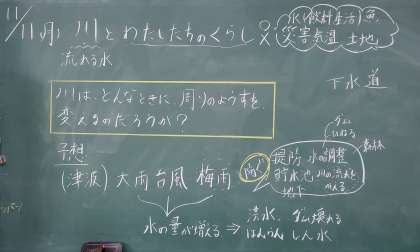 11/11(月) 川とわたしたちのくらし
水(飲料 生活) 魚
災害 気温 土地
流れる水
下水道
川は、どんなときに 周りのようすを
変えるのだろうか？
予想
(津波) 大雨 台風 梅雨
防ぐ
ダム
森林
堤防 水の調整
貯水池 川の流れを
かえる
地下
水の量が増える ⇒ 洪水、ダム壊れる
はんらん しん水